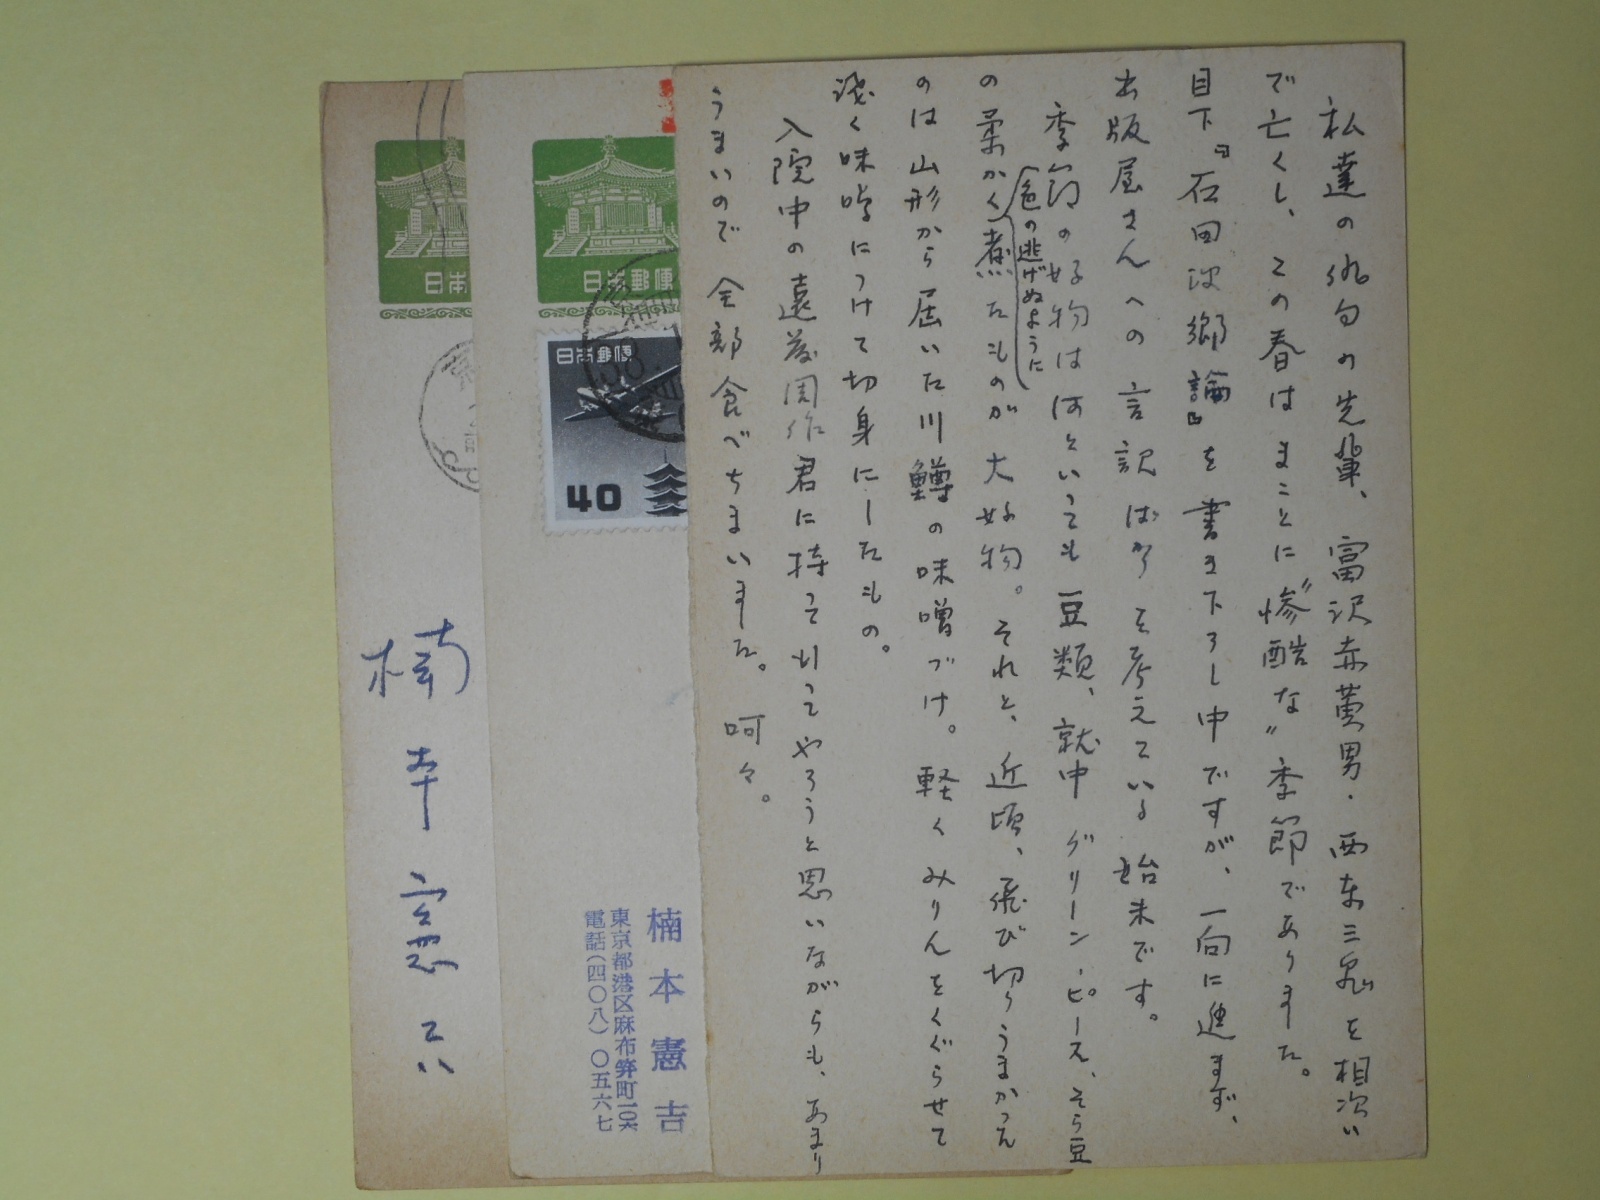 私達の俳句の先輩、富沢赤黄男・西東三鬼を相次い
で亡くし、この春はまことに〝惨酷な〟季節でありました。
目下『石田波郷論』を書き下ろし中ですが、一向に進まず、
出版屋さんへの言訳ばかりを考えている始末です。
季節の好物は何といっても豆類、就中グリーン・ピース、そら豆
の柔かく煮たものが大好物。それと、近頃、飛び切りうまかった
色の逃げぬように
のは山形から届いた川鱒の味噌づけ。軽くみりんをくぐらせて
浅く味噌につけて切身にしたもの。
入院中の遠藤周作君に持って行ってやろうと思いながらも、あまり
うまいので全部食べちまいました。呵々。
日本郵便
日本郵便
40
楠本憲吉
東京都港区麻布笄町一〇六
電話(四〇八)〇五六七
日本
楠本憲吉